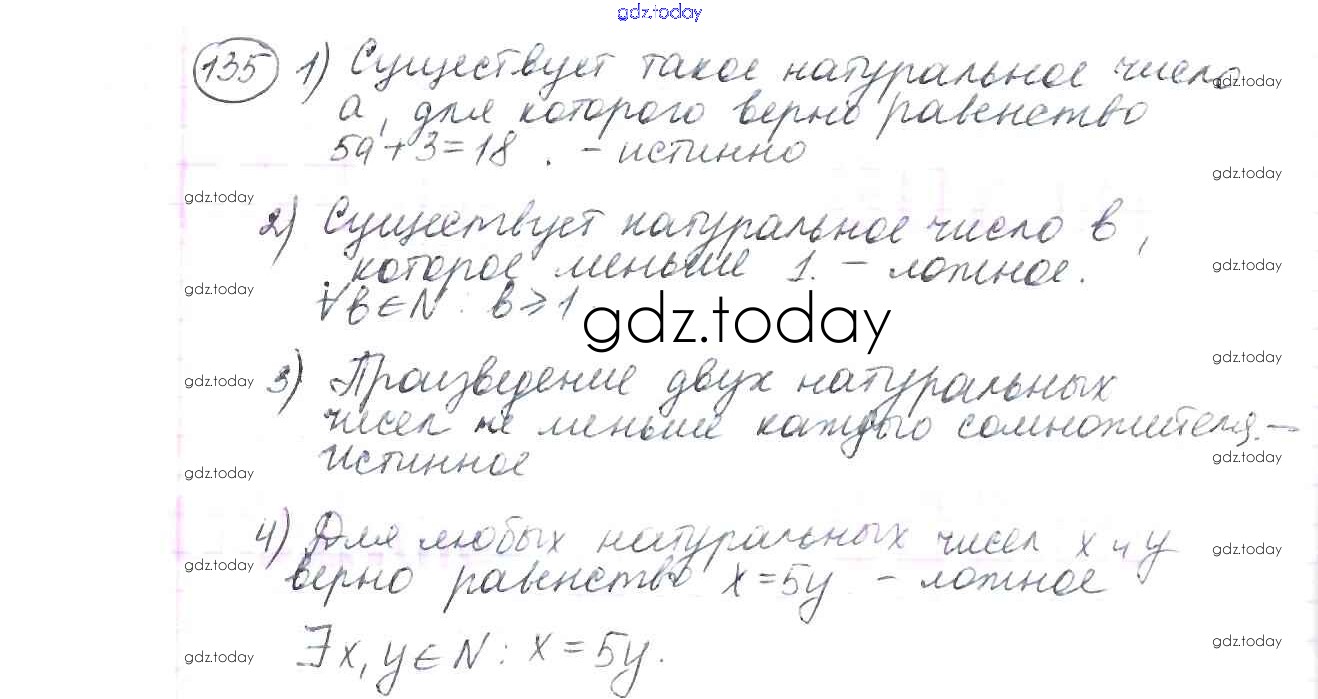 gdz.today
135 1) Существует такое натуральное число gdz.today
а, для которого верно равенство
5а+3=18. - истинно
gdz.today
gdz.today
2) Существует натуральное число в,
которое меньше 1. - ложное.
gdz.today
gdz.today
∀в∈N: в⩾1
gdz.today
gdz.today
3) Произведение двух натуральных
gdz.today
чисел не меньше каждого сомножителя. -
gdz.today
истинное
gdz.today
4) Для любых натуральных чисел х и у
gdz.today
верно равенство х=5у - ложное
gdz.today
∃х,у∈N: х=5у.
gdz.today
gdz.today